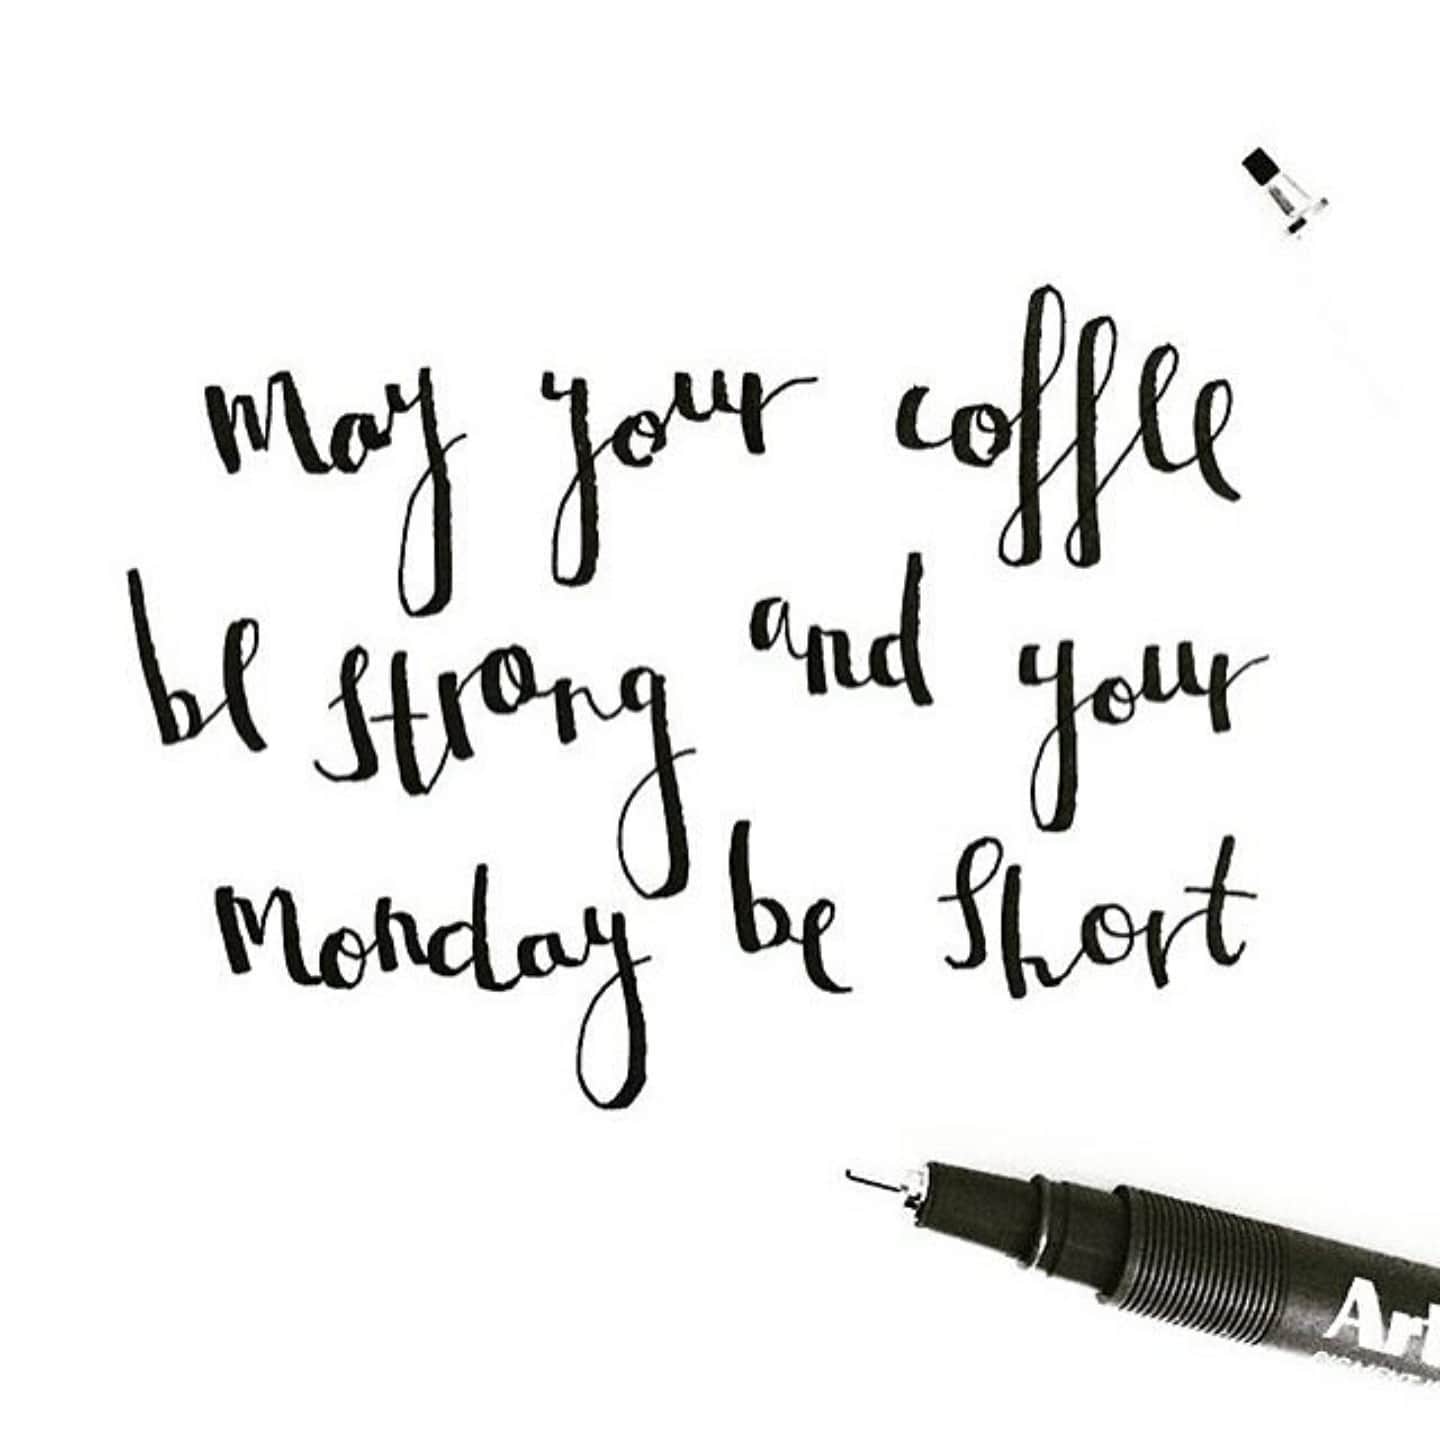 May your coffee
be strong and your
Monday be short
Art
PIGMENT